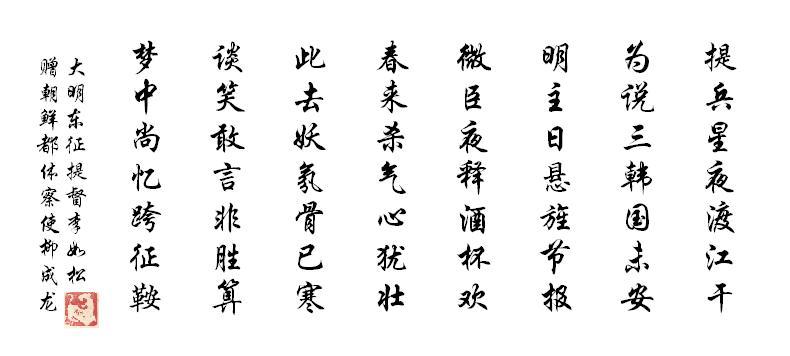 提兵星夜渡江干
为说三韩国未安
明主日悬旌节报
微臣夜释酒杯欢
春来杀气心犹壮
此去妖氛骨已寒
谈笑敢言非胜算
梦中尚忆跨征鞍
大明东征提督李如松
赠朝鲜都体察使柳成龙